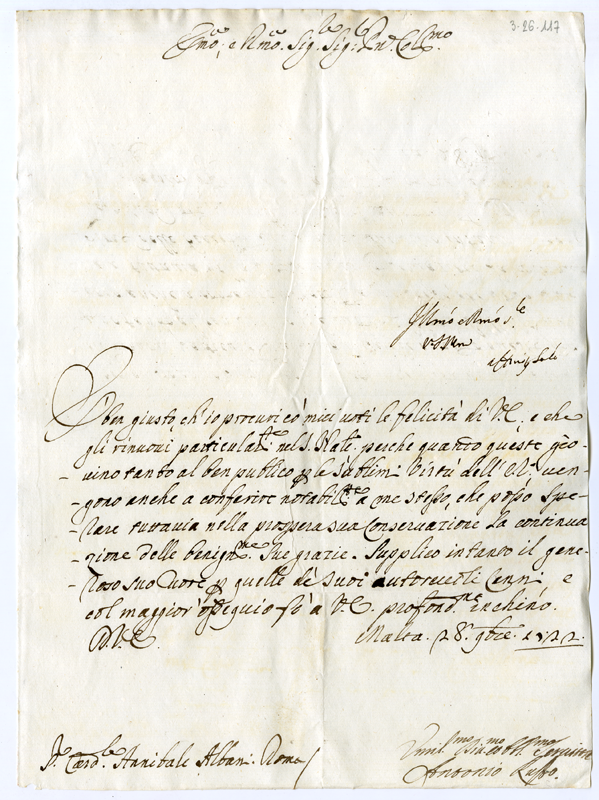 3-26-117
Em̃o, e Rm̃o. Sig.re Sig.r P̃ñe Col.mo
Ill̃mo e Rm̃o S.re
È ben giusto, ch'io procuri có miei voti le felicità di V.E., e che
gli rinuovi particular.te nel S. Nat.e, perche quando queste gio-
- vino tanto al ben publico p le sublimi Virtù dell' E.V. ven-
- gono anche a conferire notabil.te a me stesso, che posso spe-
- rare tuttavia nella prospera sua Conservazione la continua
- zione delle benign.me Sue grazie. Supplico intanto il gene-
- roso suo Cuore p quelle dè Suoi autorevoli Cenni e
col maggior osseguio fò a V.E. profond.me inchino.
D.V.E.
Malta. 28. 9bre. 1722.
S.r Card.le Anibale Albani. Roma
Umil.mo Div.mo Obb.mo Servitore
Antonio